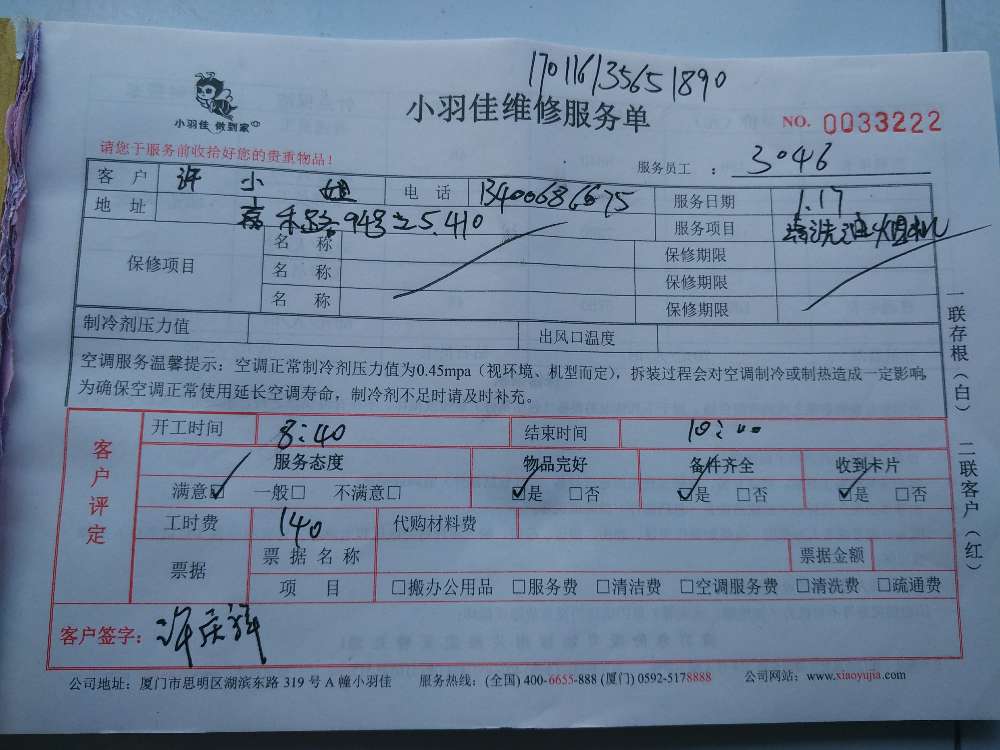 170116135651890
小羽佳 做到家
小羽佳维修服务单
NO. 0033222
请您于服务前收拾好您的贵重物品！
服务员工 : 3046
客 户 许 小 姐 电 话 13400686675 服务日期 1.17
地 址 禾路948之5.410 服务项目 清洗油烟机
保修项目 名 称 保修期限
名 称 保修期限
名 称 保修期限
制冷剂压力值 出风口温度
空调服务温馨提示：空调正常制冷剂压力值为0.45mpa（视环境、机型而定），拆装过程会对空调制冷或制热造成一定影响，
为确保空调正常使用延长空调寿命，制冷剂不足时请及时补充。
客户评定
开工时间 8:40 结束时间 10:00
服务态度 物品完好 备件齐全 收到卡片
满意☑ 一般□ 不满意□ ☑是 □否 ☑是 □否 ☑是 □否
工时费 140 代购材料费
票据 票 据 名 称 票据金额
项 目 □搬办公用品 □服务费 □清洁费 □空调服务费 □清洗费 □疏通费
客户签字： 许庆祥
公司地址：厦门市思明区湖滨东路 319 号 A 幢小羽佳 服务热线：(全国) 400-6655-888 (厦门) 0592-5178888 公司网站：www.xiaoyujia.com
一联存根（白） 二联客户（红）